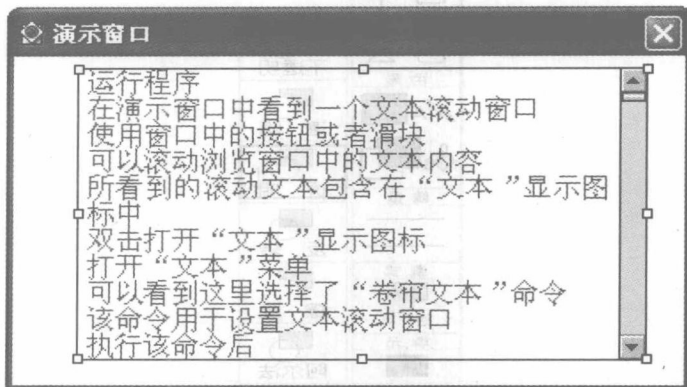 演示窗口
运行程序
在演示窗口中看到一个文本滚动窗口
使用窗口中的按钮或者滑块
可以滚动浏览窗口中的文本内容
所看到的滚动文本包含在“文本”显示图
标中
双击打开“文本”显示图标
打开“文本”菜单
可以看到这里选择了“卷帘文本”命令
该命令用于设置文本滚动窗口
执行该命令后